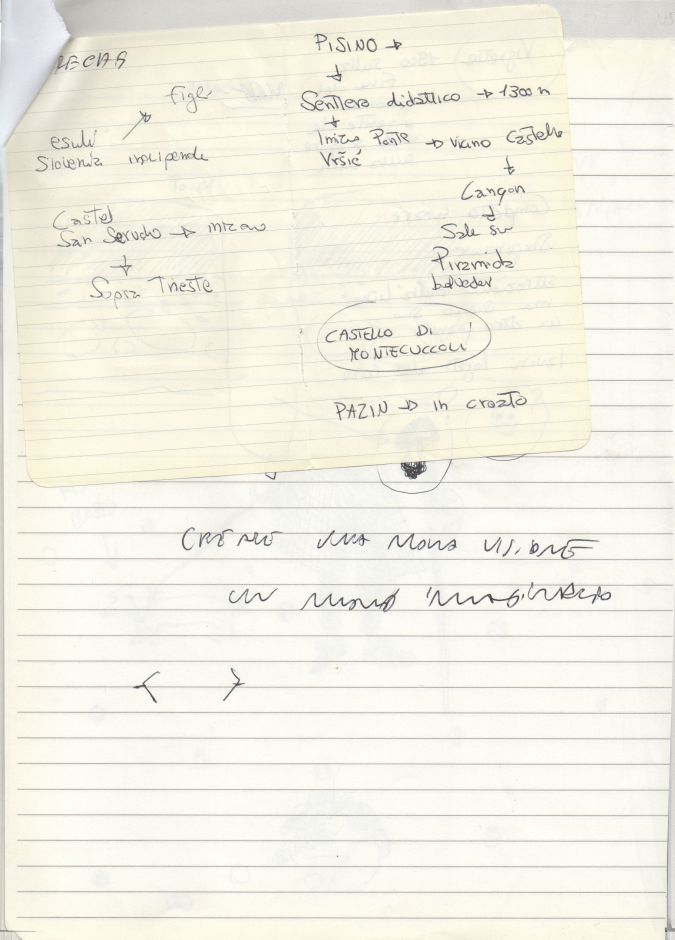 esuli
Slovenia indipende
Castel
San Servolo →
↓
Sopra Trieste
PISINO →
↓
Sentiero didattico → 1300 m
↓
Inizio Ponte → vicino Castello
Vršić
↓
Canyon
↓
Sale su
Piramida
belveder
CASTELLO DI
MONTECUCCOLI
PAZIN → in croato
CREARE UNA NUOVA VISIONE
UN NUOVO IMMAGINARIO
< >